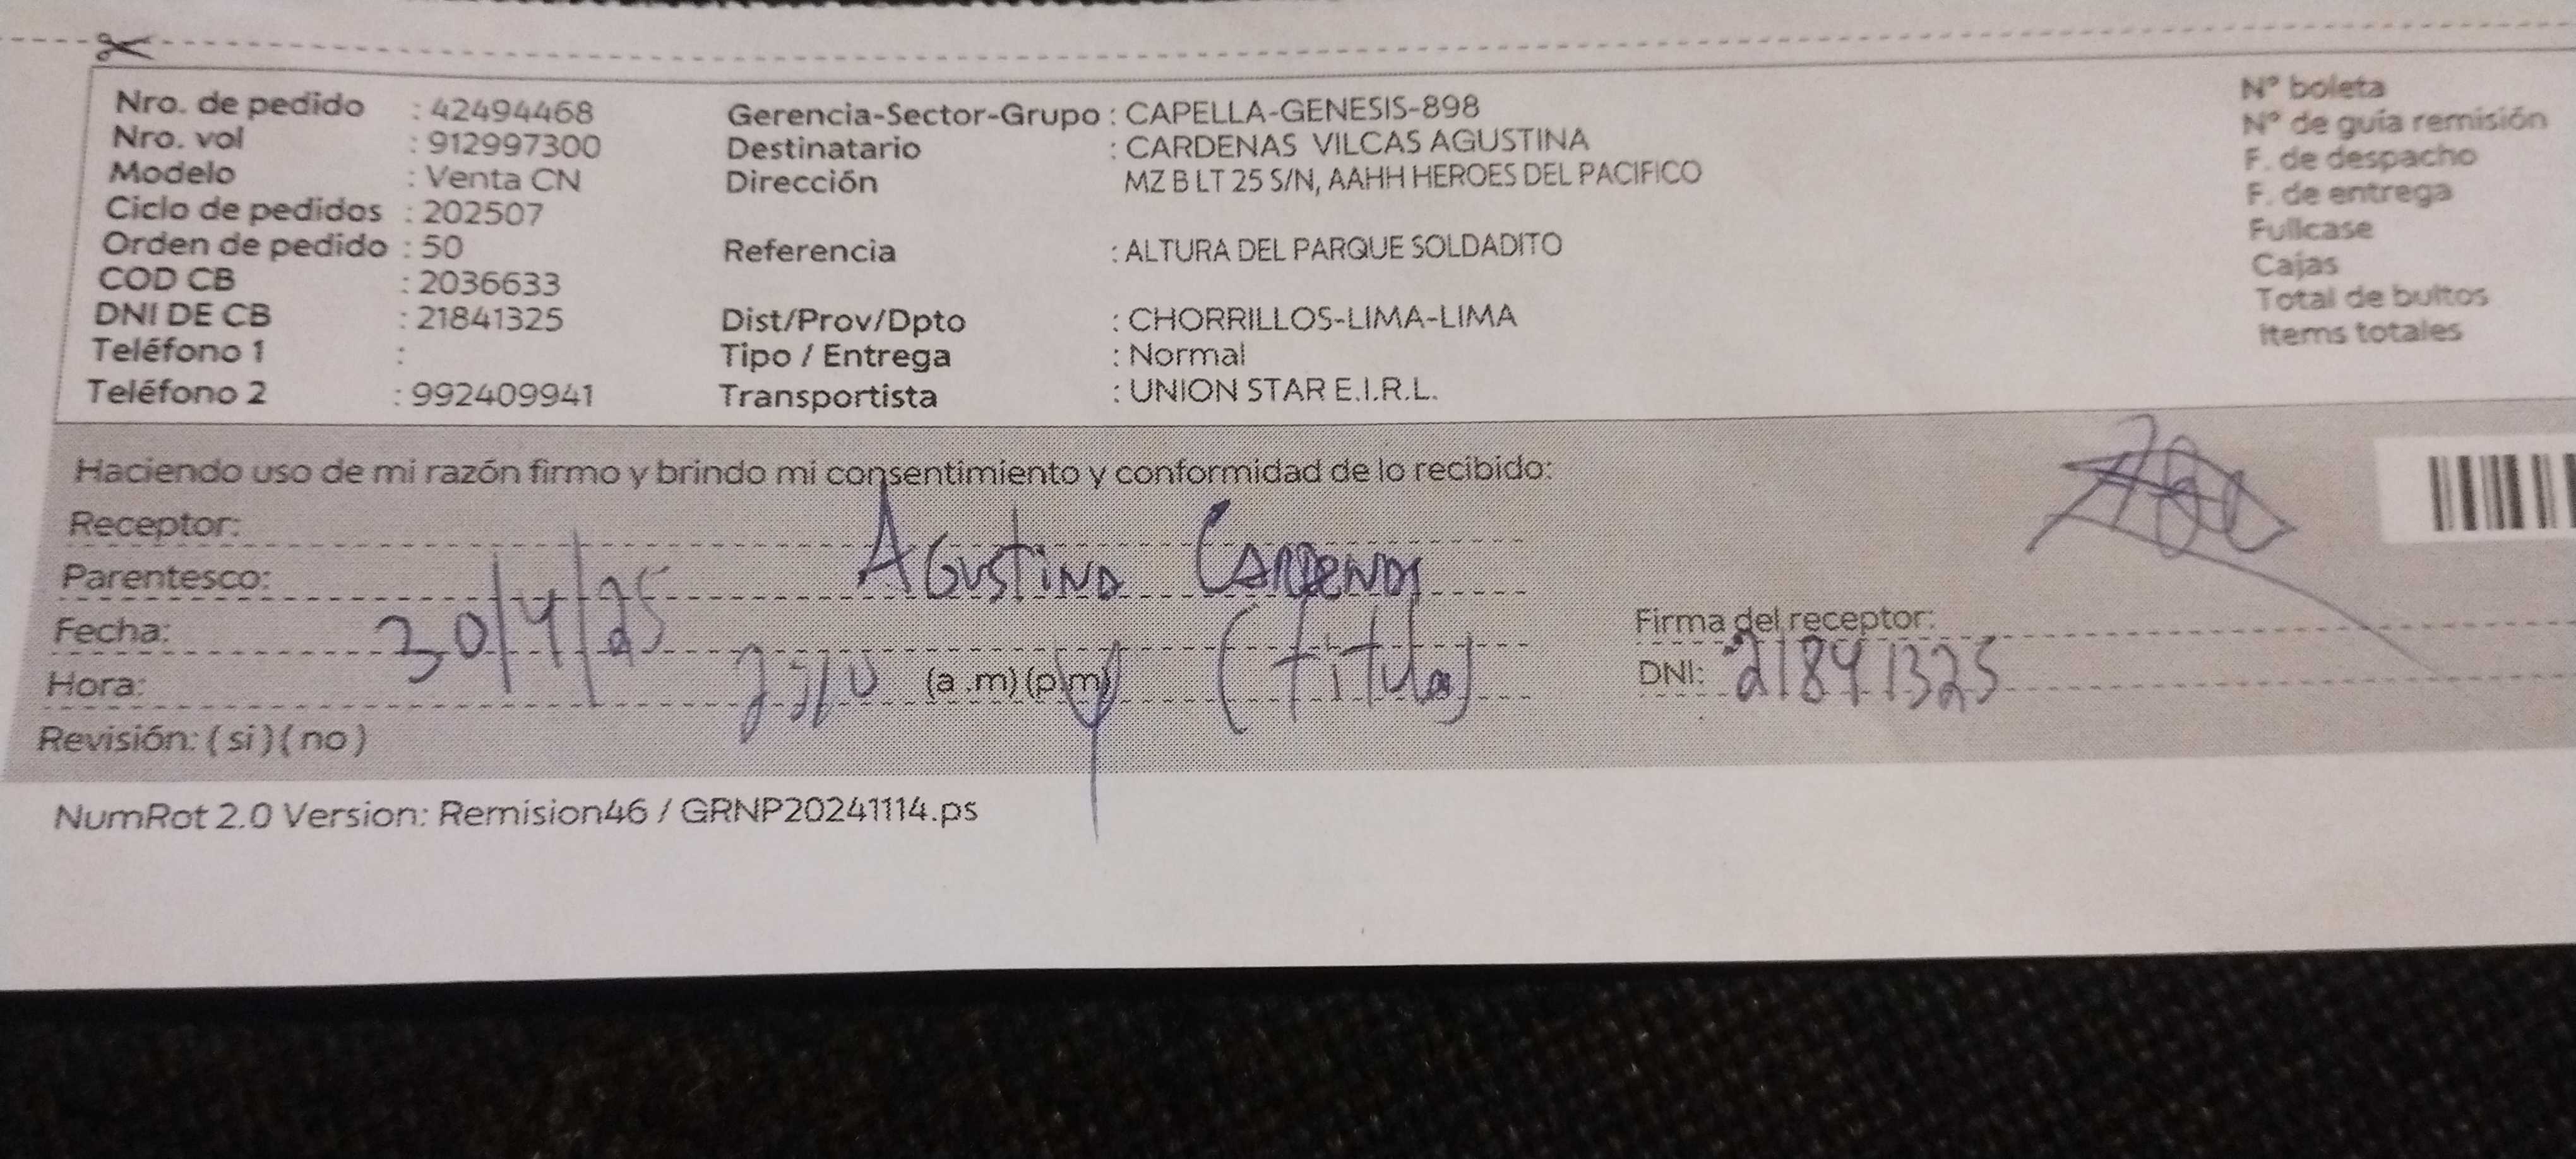 Nro. de pedido : 42494468 Gerencia-Sector-Grupo : CAPELLA-GENESIS-898 N° boleta
Nro. vol : 912997300 Destinatario : CARDENAS VILCAS AGUSTINA N° de guía remisión
Modelo : Venta CN Dirección MZ B LT 25 S/N, AAHH HEROES DEL PACIFICO F. de despacho
Ciclo de pedidos : 202507 F. de entrega
Orden de pedido : 50 Referencia : ALTURA DEL PARQUE SOLDADITO Fullcase
COD CB : 2036633 Cajas
DNI DE CB : 21841325 Dist/Prov/Dpto : CHORRILLOS-LIMA-LIMA Total de bultos
Teléfono 1 : Tipo / Entrega : Normal Items totales
Teléfono 2 : 992409941 Transportista : UNION STAR E.I.R.L.
Haciendo uso de mi razón firmo y brindo mi consentimiento y conformidad de lo recibido:
Receptor: Agustina Cardenas
Parentesco:
Fecha: 30/4/25 Firma del receptor:
Hora: (a .m) (p.m) (titular) DNI: 21841325
Revisión: ( si ) ( no )
NumRot 2.0 Version: Remision46 / GRNP20241114.ps